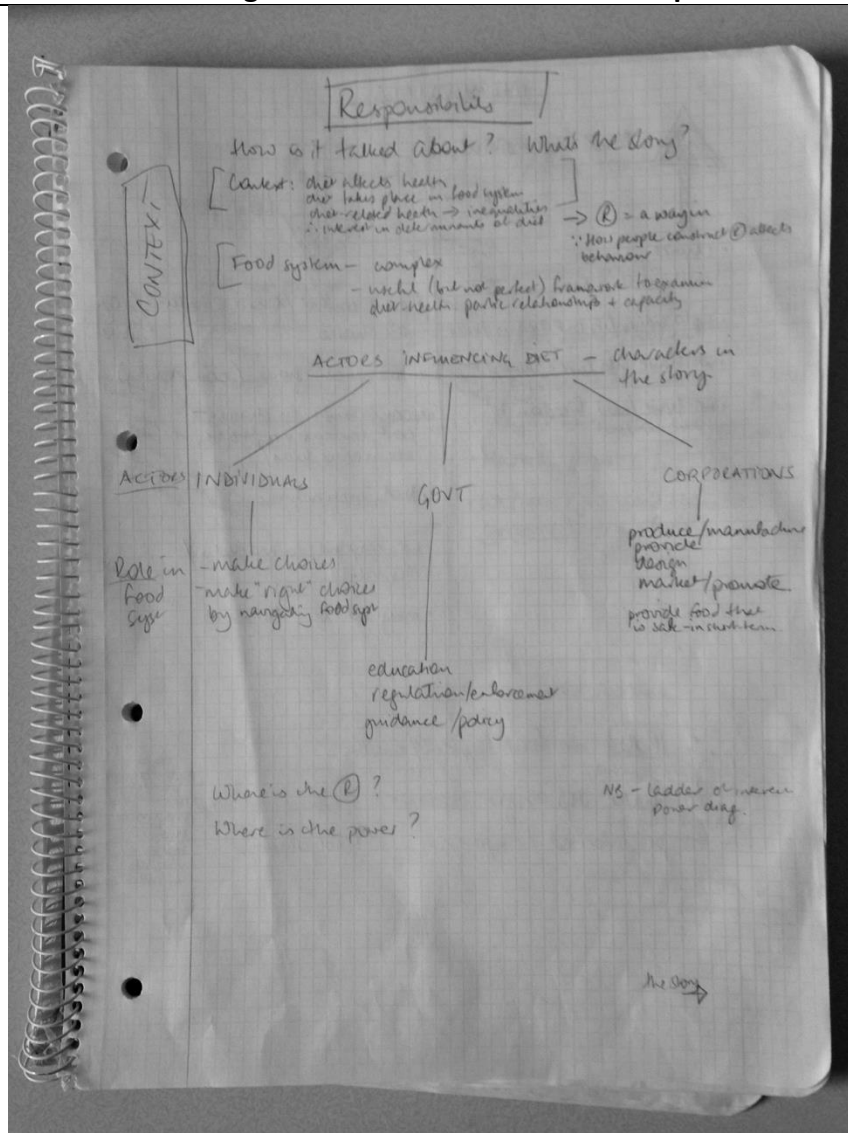 Responsibilities
How is it talked about? What's the story?
CONTEXT
[Context: diet affects health
diet takes place in food system
diet-related health → inequalities
∴ interest in determinants of diet]
→ Ⓡ = a way in
∵ How people construct Ⓡ affects
behaviour
[Food system - complex
- useful (but not perfect) framework to examine
diet-health partic relationships + capacity
ACTORS INFLUENCING DIET - characters in
the story
ACTORS INDIVIDUALS
GOVT
CORPORATIONS
Role in
food
syst
- make choices
- make "right" choices
by navigating food syst
produce/manufacture
provide
design
market/promote.
provide food that
is safe - in short term.
education
regulation/enforcement
guidance/policy
Where is the Ⓡ?
Where is the power?
NB - ladder of
power diag.
the story →